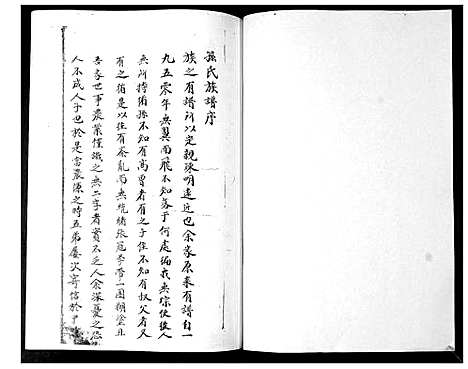 孫氏族譜序
族之有譜所以定親疎明遠近也余家原來有譜自一
九五零年無翼而飛不知落于何處編我無宗使後人
無所持循孫不知有高曾者有之子侄不知有叔父者又
有之猶是以往有紊亂而無統緒張冠李帶一團糊塗且
吾家世事農業僅識之無二字者實不乏人余深憂之恐
人不成人子也於是當農隙之時五弟屢次寄信於